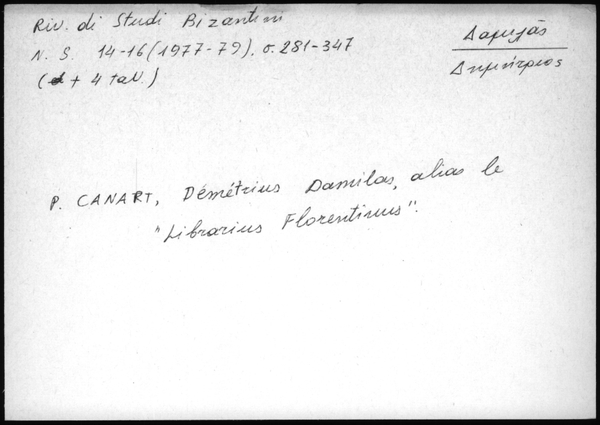 Riv. di Studi Bizantini
N. S. 14-16 (1977-79), σ. 281-347
( + 4 tav.)
Δαμιλᾶς
Δημήτριος
P. CANART, Démétrius Damilas, alias le
"Librarius Florentinus".